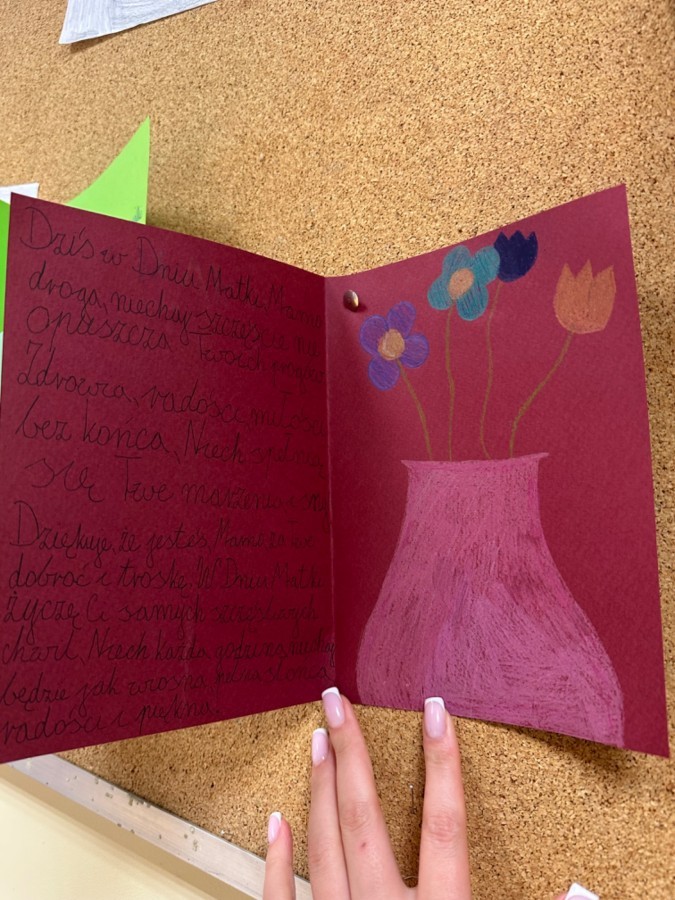 Dziś w Dniu Matki, Mamo
droga, niechaj szczęście nie
opuszcza Twoich progów
Zdrowia, radości, miłości
bez końca, Niech spełnią
się Twe marzenia
Dziękuję, że jesteś, Mamo za
dobroć i troskę. W Dniu Matki
życzę Ci samych szczęśliwych
chwil, Niech każda godzina
będzie jak wiosna, pełna słońca,
radości i piękna.